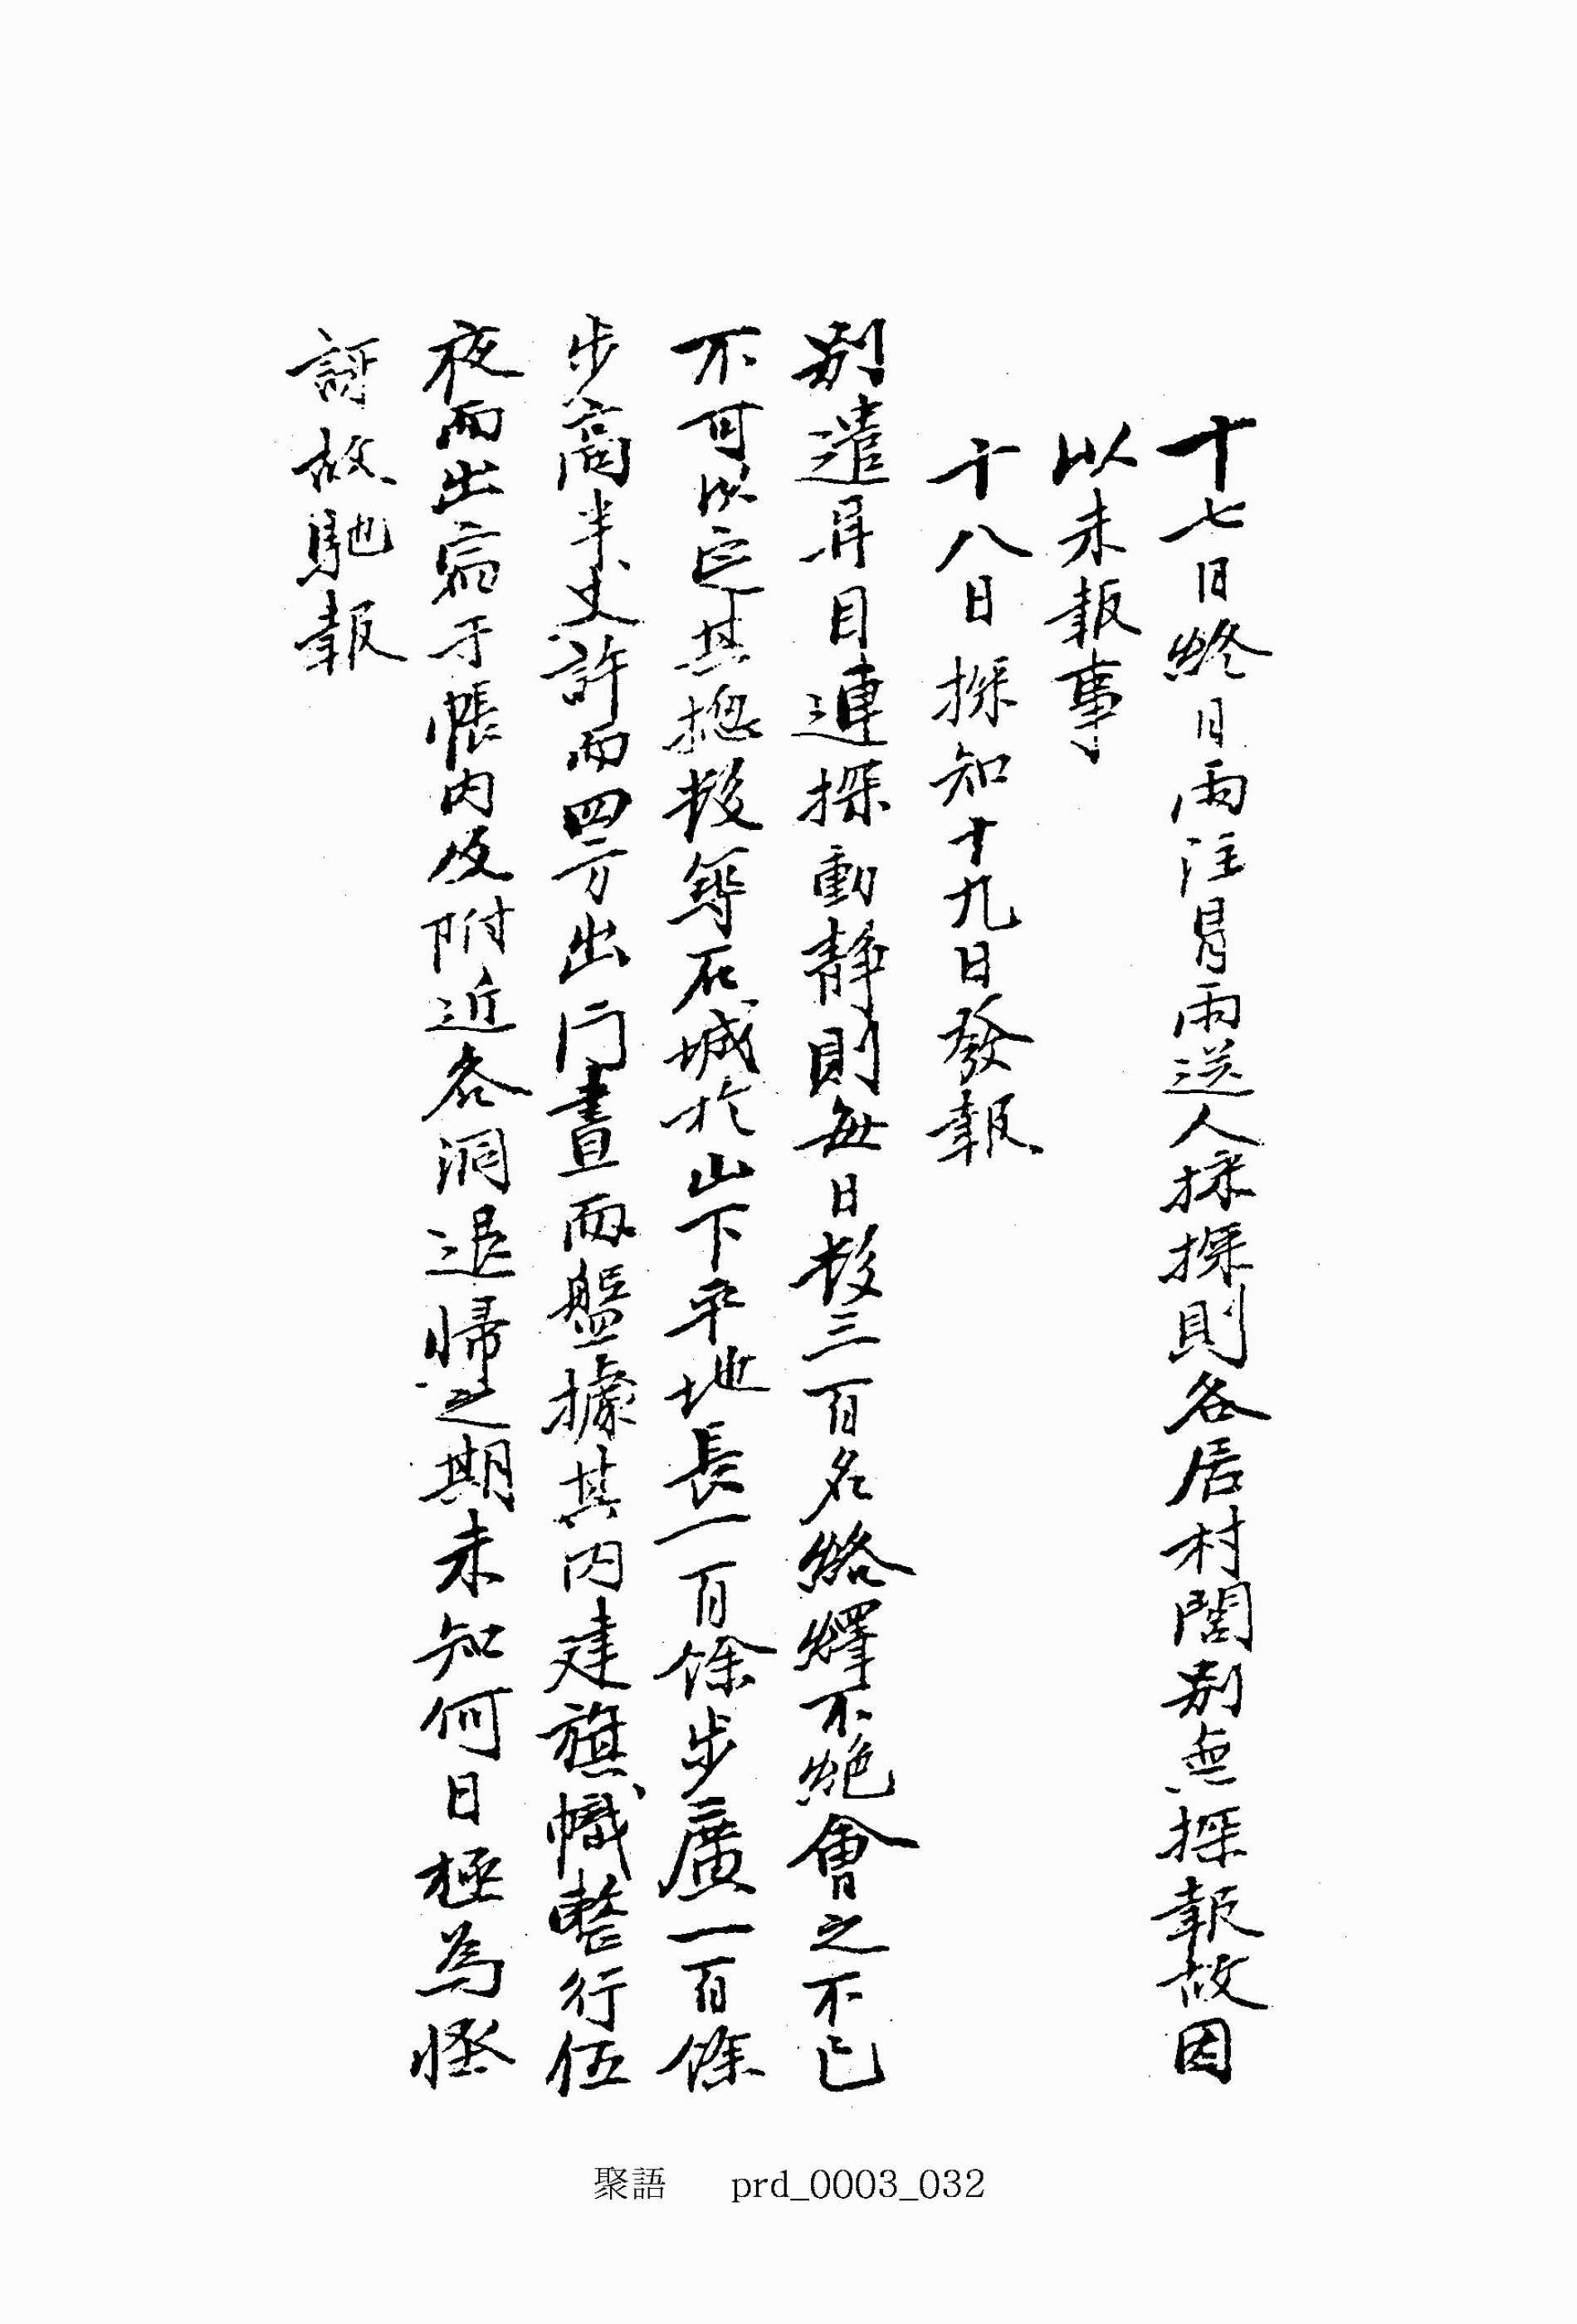 十七日終日雨注冒雨送人採探則各居村閭別無探報故因
以未報事
十八日探知十九日發報
別遣再目連探動靜則每日數三百名絡繹不絶會之不已
不可以定其摠數等石城於山下平地長一百餘步廣一百餘
步高半丈許而四方出門晝而盤據其內建旗幟整行伍
夜而出寫于帳內及附近各洞退歸之期未知何日極為怪
訝故馳報
聚語 prd_0003_032